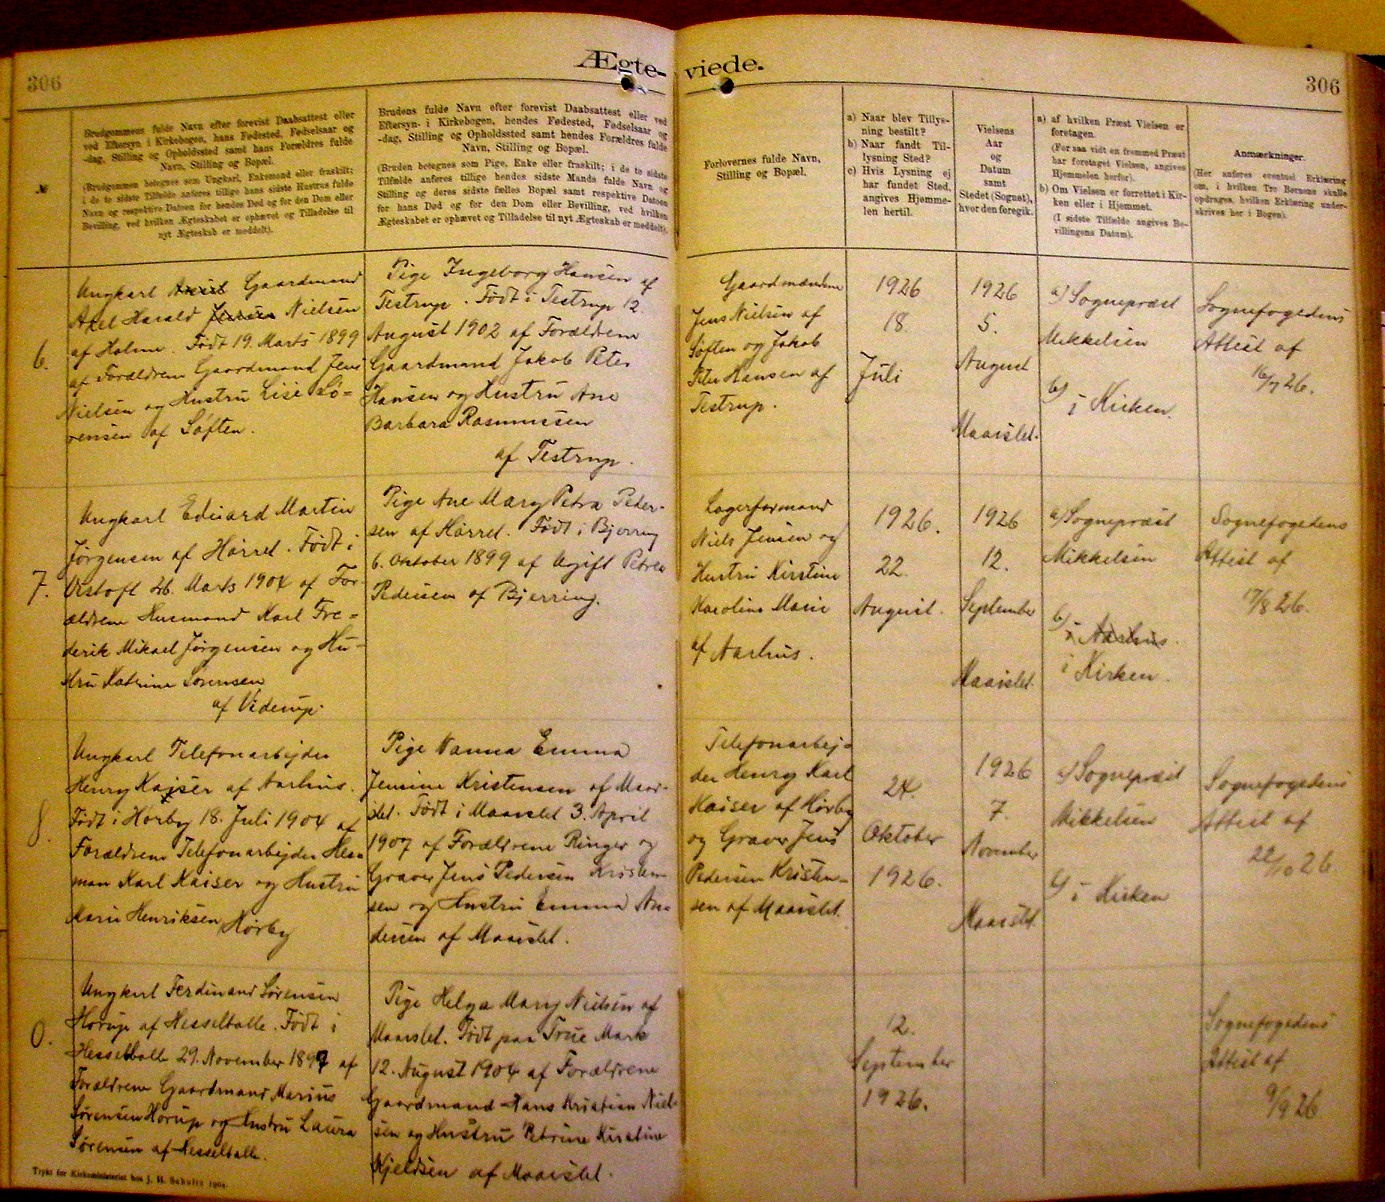 306
Ægte-
viede.
306
№
Brudgommens fulde Navn efter forevist Daabsattest eller
ved Eftersyn i Kirkebogen, hans Fødested, Fødselsaar og
-dag, Stilling og Opholdssted samt hans Forældres fulde
Navn, Stilling og Bopæl.
(Brudgommen betegnes som Ungkarl, Enkemand eller fraskilt;
i de to sidste Tilfælde anføres tillige hans sidste Hustrus fulde
Navn og respektive Datoen for hendes Død og for den Dom eller
Bevilling, ved hvilken Ægteskabet er ophævet og Tilladelse til
nyt Ægteskab er meddelt).
Brudens fulde Navn efter forevist Daabsattest eller ved
Eftersyn i Kirkebogen, hendes Fødested, Fødselsaar og
-dag, Stilling og Opholdssted samt hendes Forældres fulde
Navn, Stilling og Bopæl.
(Bruden betegnes som Pige, Enke eller fraskilt; i de to sidste
Tilfælde anføres tillige hendes sidste Mands fulde Navn og
Stilling og deres sidste fælles Bopæl samt respektive Datoen
for hans Død og for den Dom eller Bevilling, ved hvilken
Ægteskabet er ophævet og Tilladelse til nyt Ægteskab er meddelt).
Forlovernes fulde Navn,
Stilling og Bopæl.
a) Naar blev Tillys-
ning bestilt?
b) Naar fandt Til-
lysning Sted?
c) Hvis Lysning ej
har fundet Sted,
angives Hjemme-
len hertil.
Vielsens
Aar
og
Datum
samt
Stedet (Sognet),
hvor den foregik.
a) af hvilken Præst Vielsen er
foretagen.
(For saa vidt en fremmed Præst
har foretaget Vielsen, angives
Hjemmelen herfor).
b) Om Vielsen er forrettet i Kir-
ken eller i Hjemmet.
(I sidste Tilfælde angives Be-
villingens Datum).
Anmærkninger.
(Her anføres eventuel Erklæring
om, i hvilken Tro Børnene skulle
opdrages, hvilken Erklæring under-
skrives her i Bogen).
6.
Ungkarl Axel Gaardmand
Axel Harald Jensen Nielsen
af Holme. Født 19. Marts 1899
af Forældrene Gaardmand Jens
Nielsen og Hustru Lise Sö-
rensen af Söften.
Pige Ingeborg Hansen af
Testrup. Født i Testrup 12.
August 1902 af Forældrene
Gaardmand Jakob Peter
Hansen og Hustru Ane
Barbara Rasmussen
af Testrup.
Gaardmændene
Jens Nielsen af
Söften og Jakob
Peter Hansen af
Testrup.
1926
18.
Juli
1926
5.
August
Maarslet.
a) Sognepræst
Mikkelsen
b)
i Kirken.
Sognefogedens
Attest af
16/7 26.
7.
Ungkarl Eduard Martin
Jörgensen af Hörret. Født i
Ørstoft 26. Marts 1904 af For-
ældrene Husmand Karl Fre-
derik Mikael Jörgensen og Hu-
stru Katrine Sörensen
af Viderup.
Pige Ane Mary Petra Peder-
sen af Hörret. Født i Bjerring
6. Oktober 1899 af Ugift Petrea
Pedersen af Bjerring.
Lagerformand
Niels Jensen og
Hustru Kirstine
Karoline Marie
af Aarhus.
1926.
22.
August.
1926
12.
September
Maarslet.
a) Sognepræst
Mikkelsen
b)
i Aarhus.
i Kirken.
Sognefogedens
Attest af
17/8 26.
8.
Ungkarl Telefonarbejder
Henry Kaiser af Aarhus.
Født i Hörby 18. Juli 1904 af
Forældrene Telefonarbejder Her-
man Karl Kaiser og Hustru
Marie Henriksen Hörby
Pige Nanna Emma
Jensine Kristensen af Maar-
slet. Født i Maarslet 3. April
1907 af Forældrene Ringer og
Graver Jens Pedersen Kristen-
sen og Hustru Emma An-
dersen af Maarslet.
Telefonarbej-
der Henry Karl
Kaiser af Hörby
og Graver Jens
Pedersen Kristen-
sen af Maarslet.
24.
Oktober
1926.
1926
7.
November
Maarslet.
a) Sognepræst
Mikkelsen
b) i Kirken
Sognefogedens
Attest af
22/10 26.
0.
Ungkarl Ferdinand Sörensen
Horup af Hesselballe. Født i
Hesselballe 29. November 1897 af
Forældrene Gaardmand Marius
Sörensen Horup og Hustru Laura
Sörensen af Hesselballe.
Pige Helga Mary Nielsen af
Maarslet. Født paa True Mark
12. August 1904 af Forældrene
Gaardmand Hans Kristian Niel-
sen og Hustru Petrine Kirstine
Kjeldsen af Maarslet.
12.
September
1926.
Sognefogedens
Attest af
9/9 26
Trykt for Kirkeministeriet hos J. H. Schultz 1904.